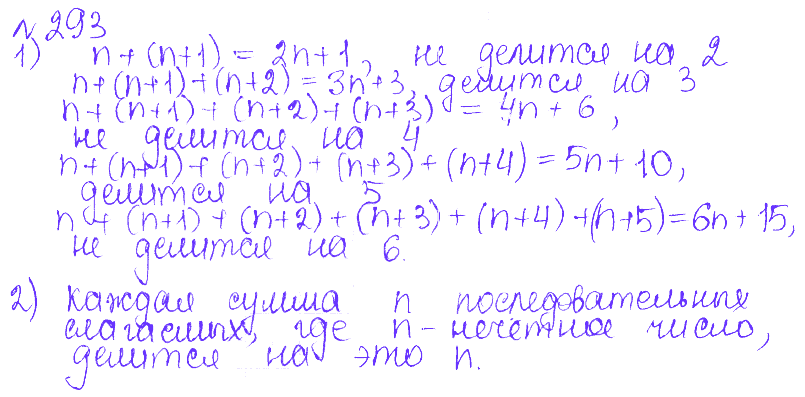 № 293
1) n + (n+1) = 2n+1, не делится на 2
n+(n+1)+(n+2) = 3n+3, делится на 3
n+(n+1)+(n+2)+(n+3) = 4n+6,
не делится на 4
n+(n+1)+(n+2)+(n+3)+(n+4) = 5n+10,
делится на 5
n+(n+1)+(n+2)+(n+3)+(n+4)+(n+5)=6n+15,
не делится на 6.
2) каждая сумма n последовательных
слагаемых, где n - нечётное число,
делится на это n.